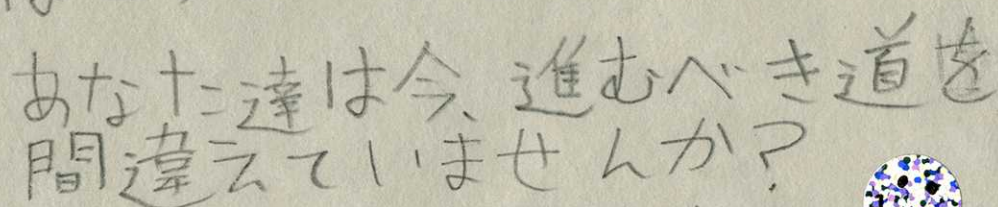 あなた達は今、進むべき道を
間違えていませんか?